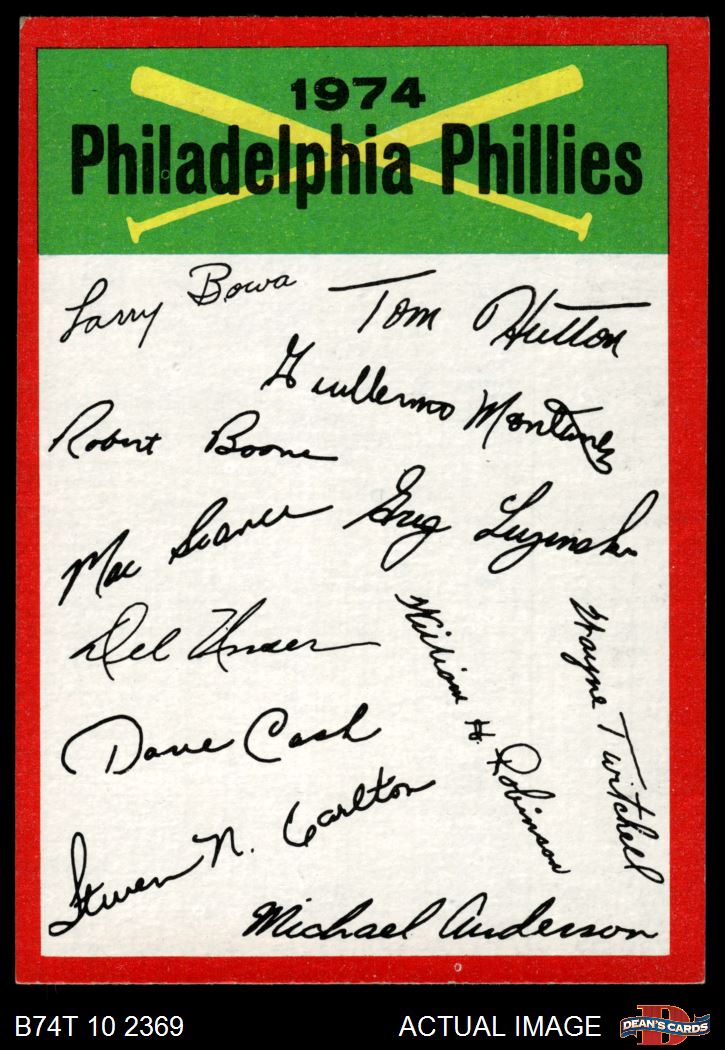 1974
Philadelphia Phillies
Larry Bowa
Tom Hutton
Guillermo Montanez
Robert Boone
Mac Scarce
Greg Luzinski
Del Unser
William H. Robinson
Wayne Twitchell
Dave Cash
Steven N. Carlton
Michael Anderson
B74T 10 2369
ACTUAL IMAGE
D
DEAN'S CARDS